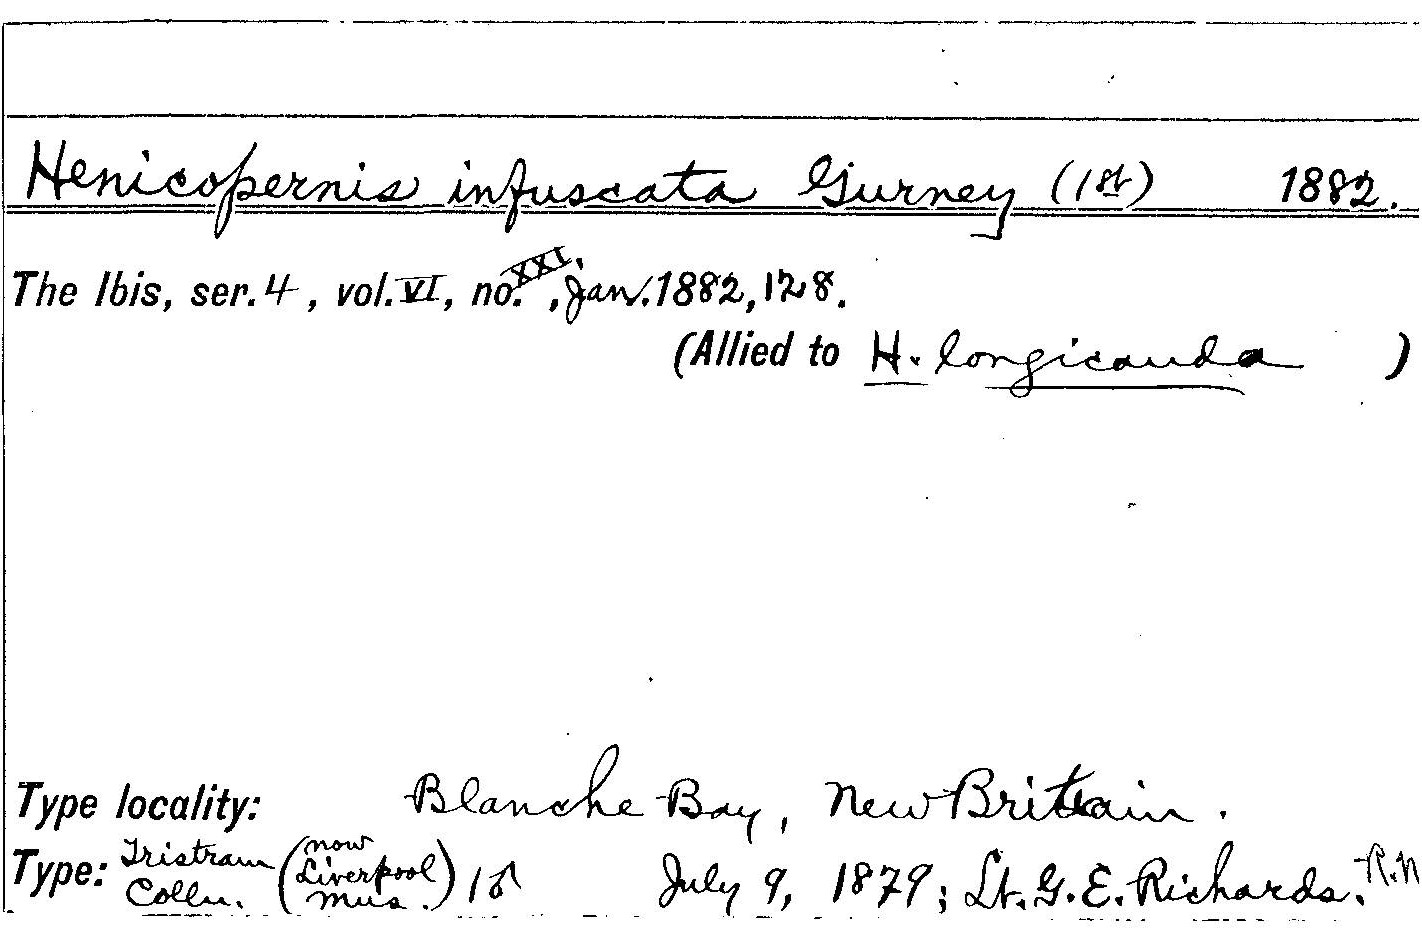 Henicopernis infuscata Gurney (1st) 1882.
The Ibis, ser. 4, vol. VI, no. XXI, Jan. 1882, 128.
(Allied to H. longicauda )
Type locality: Blanche Bay, New Britain.
Type: Tristram Colln. (now Liverpool Mus.) 1♂ July 9, 1879; Lt. G. E. Richards. R.N